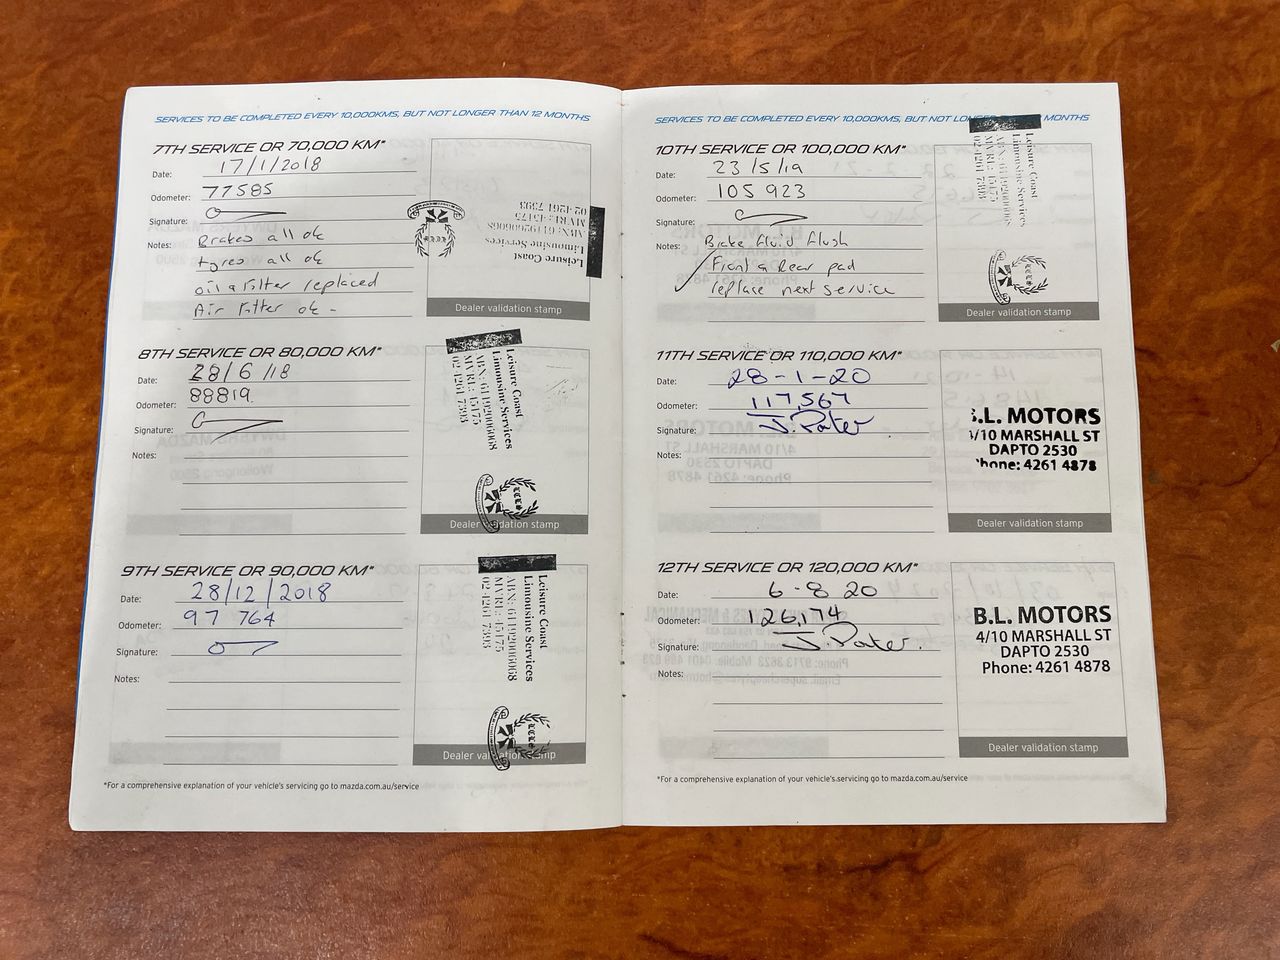 SERVICES TO BE COMPLETED EVERY 10,000KMS, BUT NOT LONGER THAN 12 MONTHS
7TH SERVICE OR 70,000 KM*
Date: 17/1/2018
Odometer: 77585
Signature:
Notes: Brakes all ok
tyres all ok
oil & filter replaced
Air filter ok -
Leisure Coast
Limousine Services
ABN: 61192006068
MVRL: 45175
02 4261 7393
Dealer validation stamp
8TH SERVICE OR 80,000 KM*
Date: 28/6/18
Odometer: 88819
Signature:
Notes:
Leisure Coast
Limousine Services
ABN: 61192006068
MVRL: 45175
02 4261 7393
Dealer validation stamp
9TH SERVICE OR 90,000 KM*
Date: 28/12/2018
Odometer: 97 764
Signature:
Notes:
Leisure Coast
Limousine Services
ABN: 61192006068
MVRL: 45175
02 4261 7393
Dealer validation stamp
*For a comprehensive explanation of your vehicle's servicing go to mazda.com.au/service
SERVICES TO BE COMPLETED EVERY 10,000KMS, BUT NOT LONGER MONTHS
10TH SERVICE OR 100,000 KM*
Date: 23/5/19
Odometer: 105 923
Signature:
Notes: Brake fluid flush
Front & Rear pad
replace next service
Leisure Coast
Limousine Services
ABN: 61192006068
MVRL: 45175
02 4261 7393
Dealer validation stamp
11TH SERVICE OR 110,000 KM*
Date: 28-1-20
Odometer: 117,567
Signature: J. Pater
Notes:
B.L. MOTORS
4/10 MARSHALL ST
DAPTO 2530
Phone: 4261 4878
Dealer validation stamp
12TH SERVICE OR 120,000 KM*
Date: 6-8 20
Odometer: 126,174
Signature: J. Pater.
Notes:
B.L. MOTORS
4/10 MARSHALL ST
DAPTO 2530
Phone: 4261 4878
Dealer validation stamp
*For a comprehensive explanation of your vehicle's servicing go to mazda.com.au/service